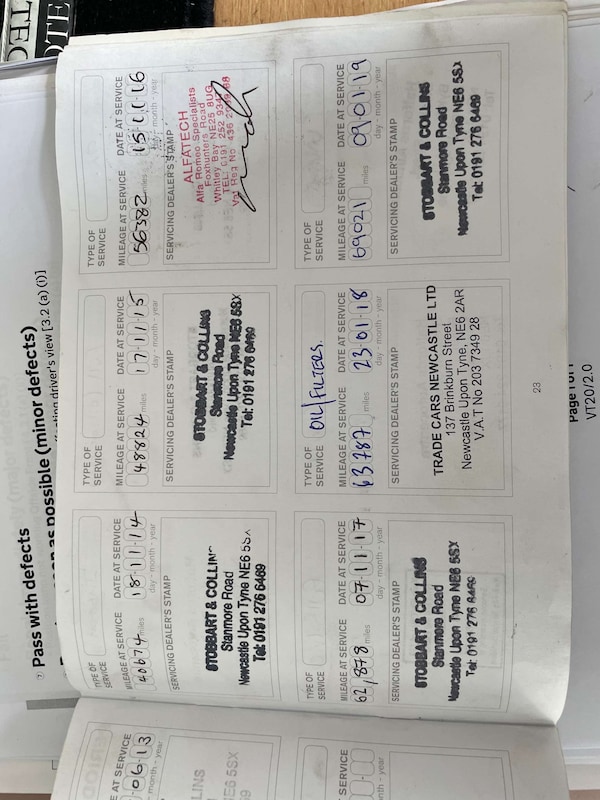 Pass with defects
soon as possible (minor defects)
driver's view [3.2 (a) (i)]
TYPE OF
SERVICE
MILEAGE AT SERVICE
DATE AT SERVICE
40674 miles
18·11·14
day - month - year
SERVICING DEALER'S STAMP
STOBBART & COLLIN
Stanmore Road
Newcastle Upon Tyne NE6 5SX
Tel: 0191 276 6469
TYPE OF
SERVICE
MILEAGE AT SERVICE
DATE AT SERVICE
48824 miles
17·11·15
day - month - year
SERVICING DEALER'S STAMP
STOBBART & COLLINS
Stanmore Road
Newcastle Upon Tyne NE6 5SX
Tel: 0191 276 6469
TYPE OF
SERVICE
MILEAGE AT SERVICE
DATE AT SERVICE
56382 miles
15·11·16
day - month - year
SERVICING DEALER'S STAMP
ALFATECH
Alfa Romeo Specialists
Foxhunters Road
Whitley Bay NE25 8UG
TEL: 0191 252
Vat Reg No 436
TYPE OF
SERVICE
MILEAGE AT SERVICE
DATE AT SERVICE
62,878 miles
07·11·17
day - month - year
SERVICING DEALER'S STAMP
STOBBART & COLLINS
Stanmore Road
Newcastle Upon Tyne NE6 5SX
Tel: 0191 276 6469
TYPE OF
SERVICE
OIL/FILTERS.
MILEAGE AT SERVICE
DATE AT SERVICE
63,787 miles
23·01·18
day - month - year
SERVICING DEALER'S STAMP
TRADE CARS NEWCASTLE LTD
137 Brinkburn Street
Newcastle Upon Tyne, NE6 2AR
V.A.T No 203 7349 28
TYPE OF
SERVICE
MILEAGE AT SERVICE
DATE AT SERVICE
69021 miles
09·01·19
day - month - year
SERVICING DEALER'S STAMP
STOBBART & COLLINS
Stanmore Road
Newcastle Upon Tyne NE6 5SX
Tel: 0191 276 6469
23
E AT SERVICE
06·13
month - year
LINS
E6 5SX
DATE AT SERVICE
day - month - year
Page 1 of 1
VT20/2.0